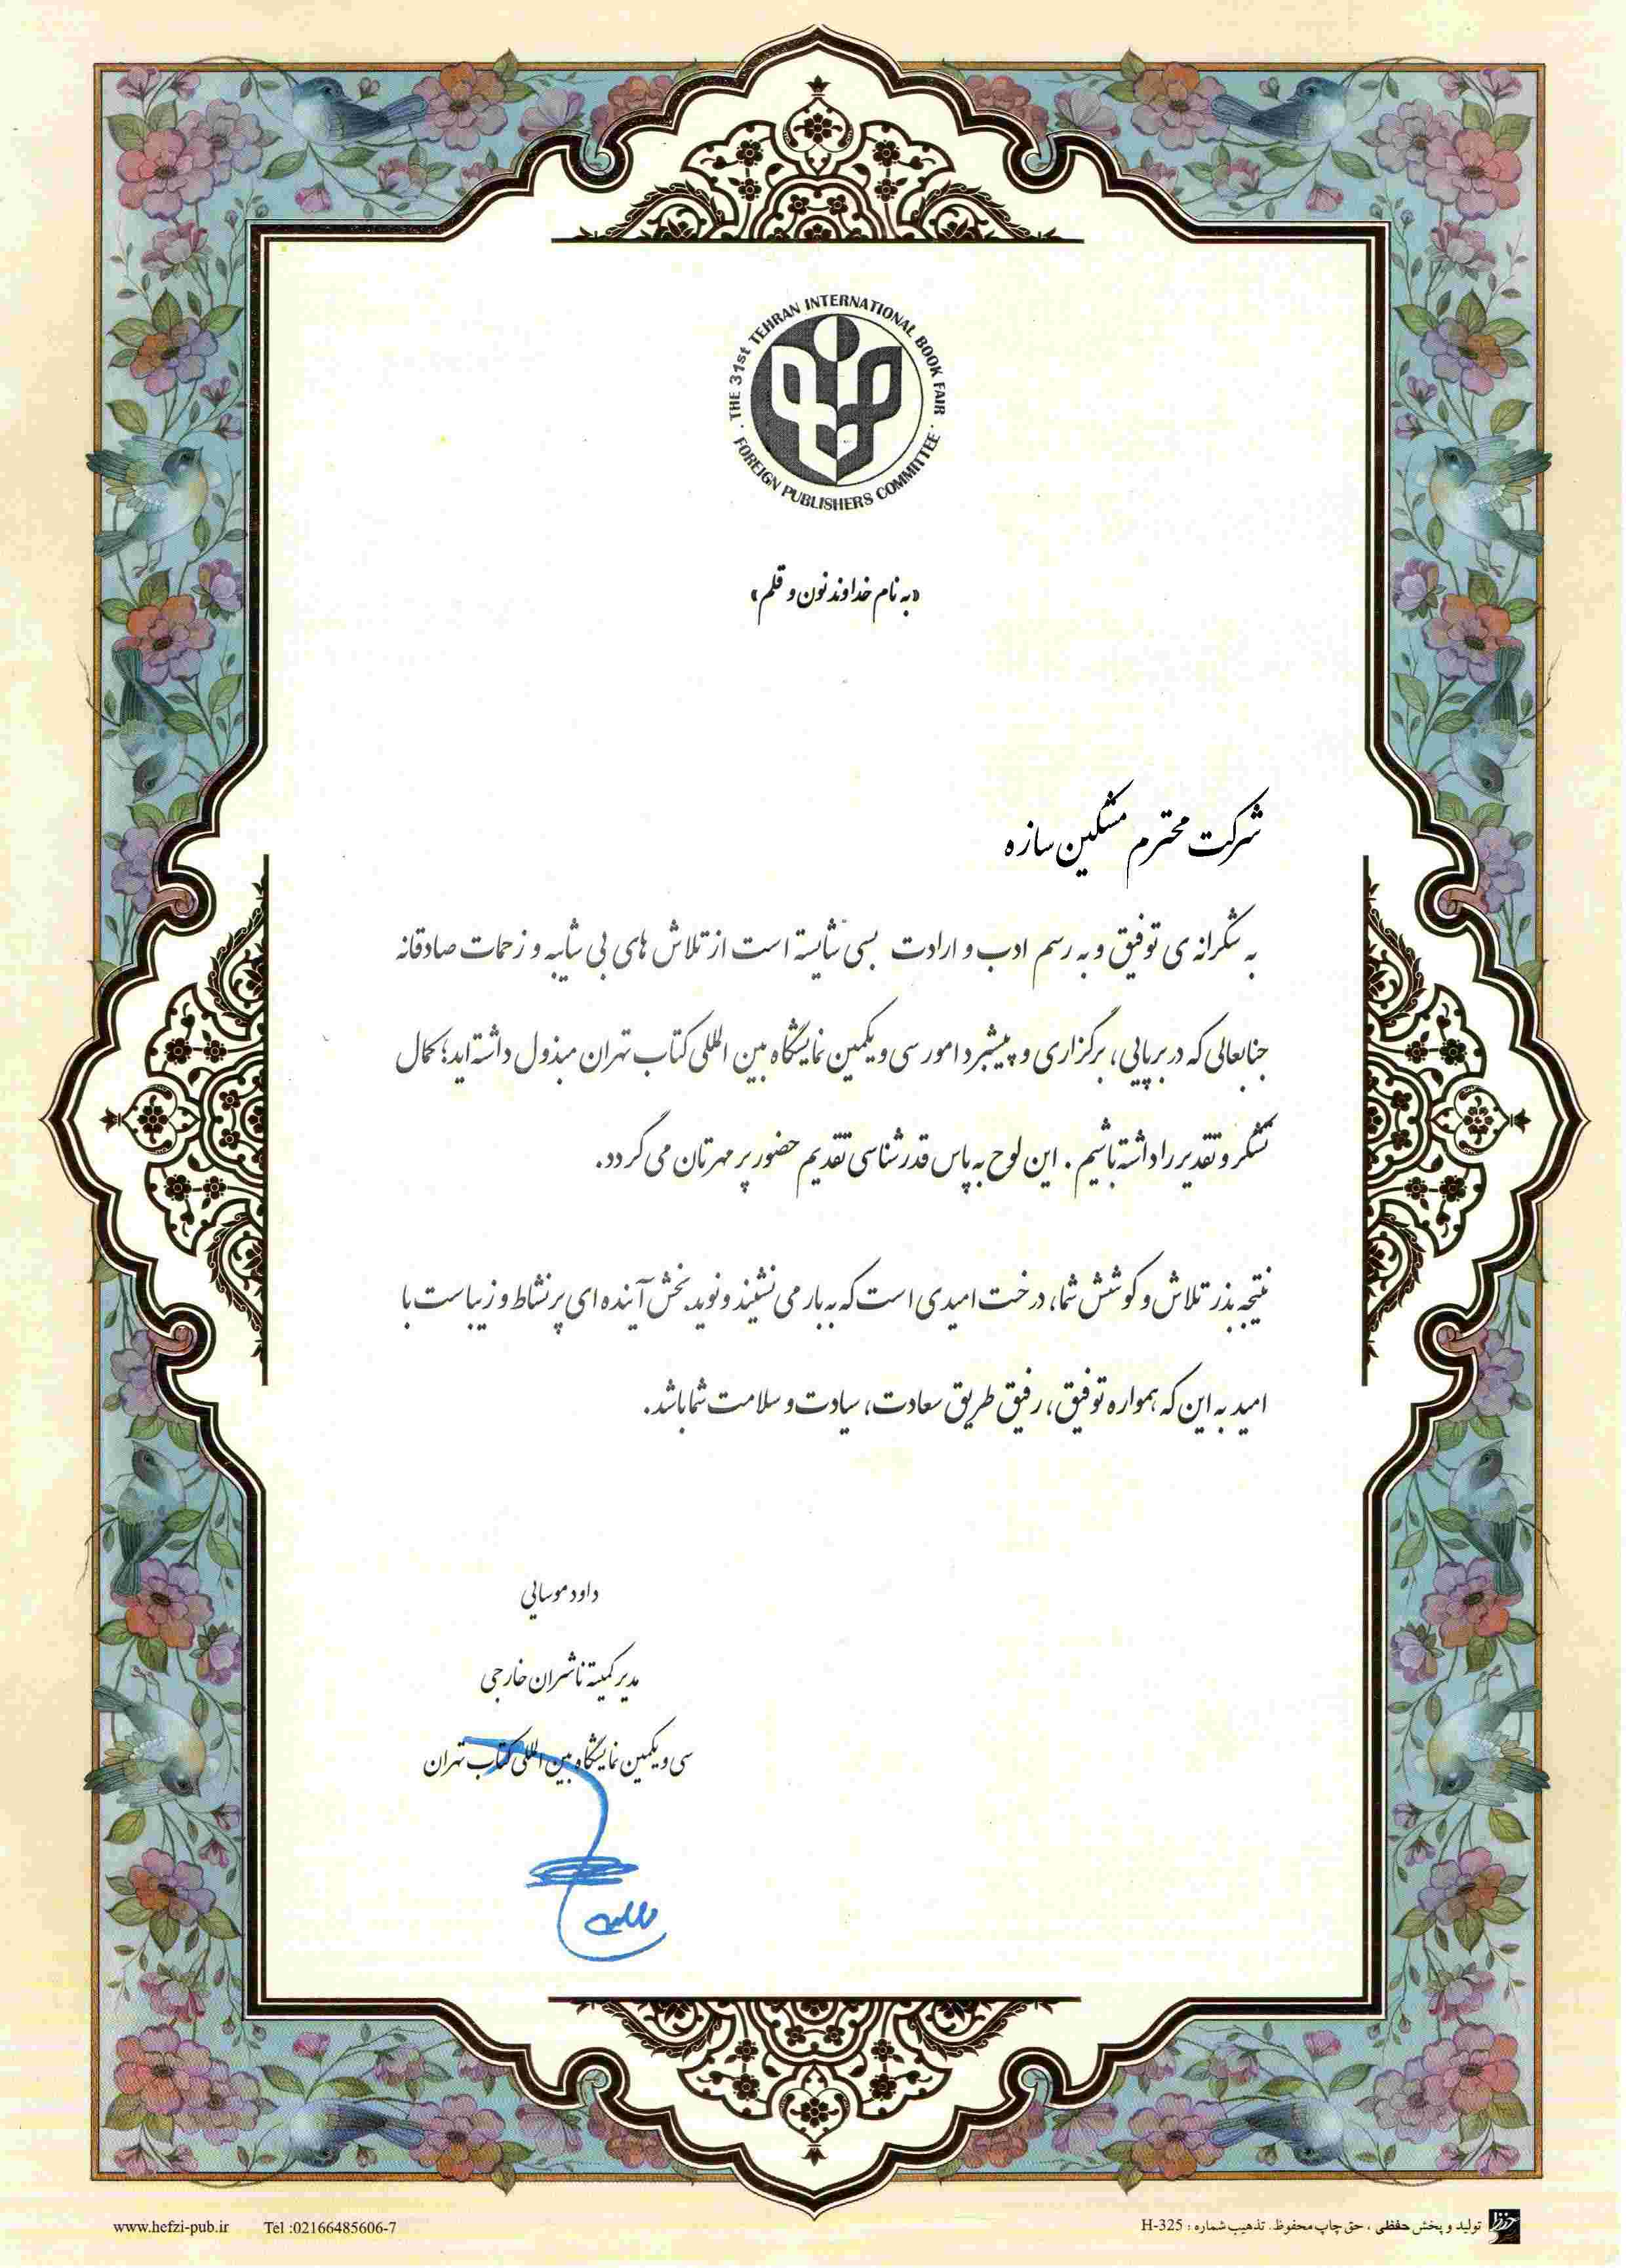 THE 31st TEHRAN INTERNATIONAL BOOK FAIR
FOREIGN PUBLISHERS COMMITTEE
«به نام خداوند نون و قلم»
شرکت محترم مشکین سازه
به شکرانه ی توفیق و به رسم ادب و ارادت بسی شایسته است از تلاش های بی شایبه و زحمات صادقانه
جنابعالی که در برپایی، برگزاری و پیشبرد امور سی و یکمین نمایشگاه بین المللی کتاب تهران مبذول داشته اید؛ کمال
تشکر و تقدیر را داشته باشیم. این لوح به پاس قدرشناسی تقدیم حضور پر مهرتان می گردد.
نتیجه بذر تلاش و کوشش شما، درخت امیدی است که به بار می نشیند و نوید بخش آینده ای پر نشاط و زیباست با
امید به این که همواره توفیق، رفیق طریق سعادت، سیادت و سلامت شما باشد.
داود موسایی
مدیر کمیته ناشران خارجی
سی و یکمین نمایشگاه بین المللی کتاب تهران
www.hefzi-pub.ir Tel :02166485606-7
تولید و پخش حفظی ، حق چاپ محفوظ. تذهیب شماره : H-325
حفظی